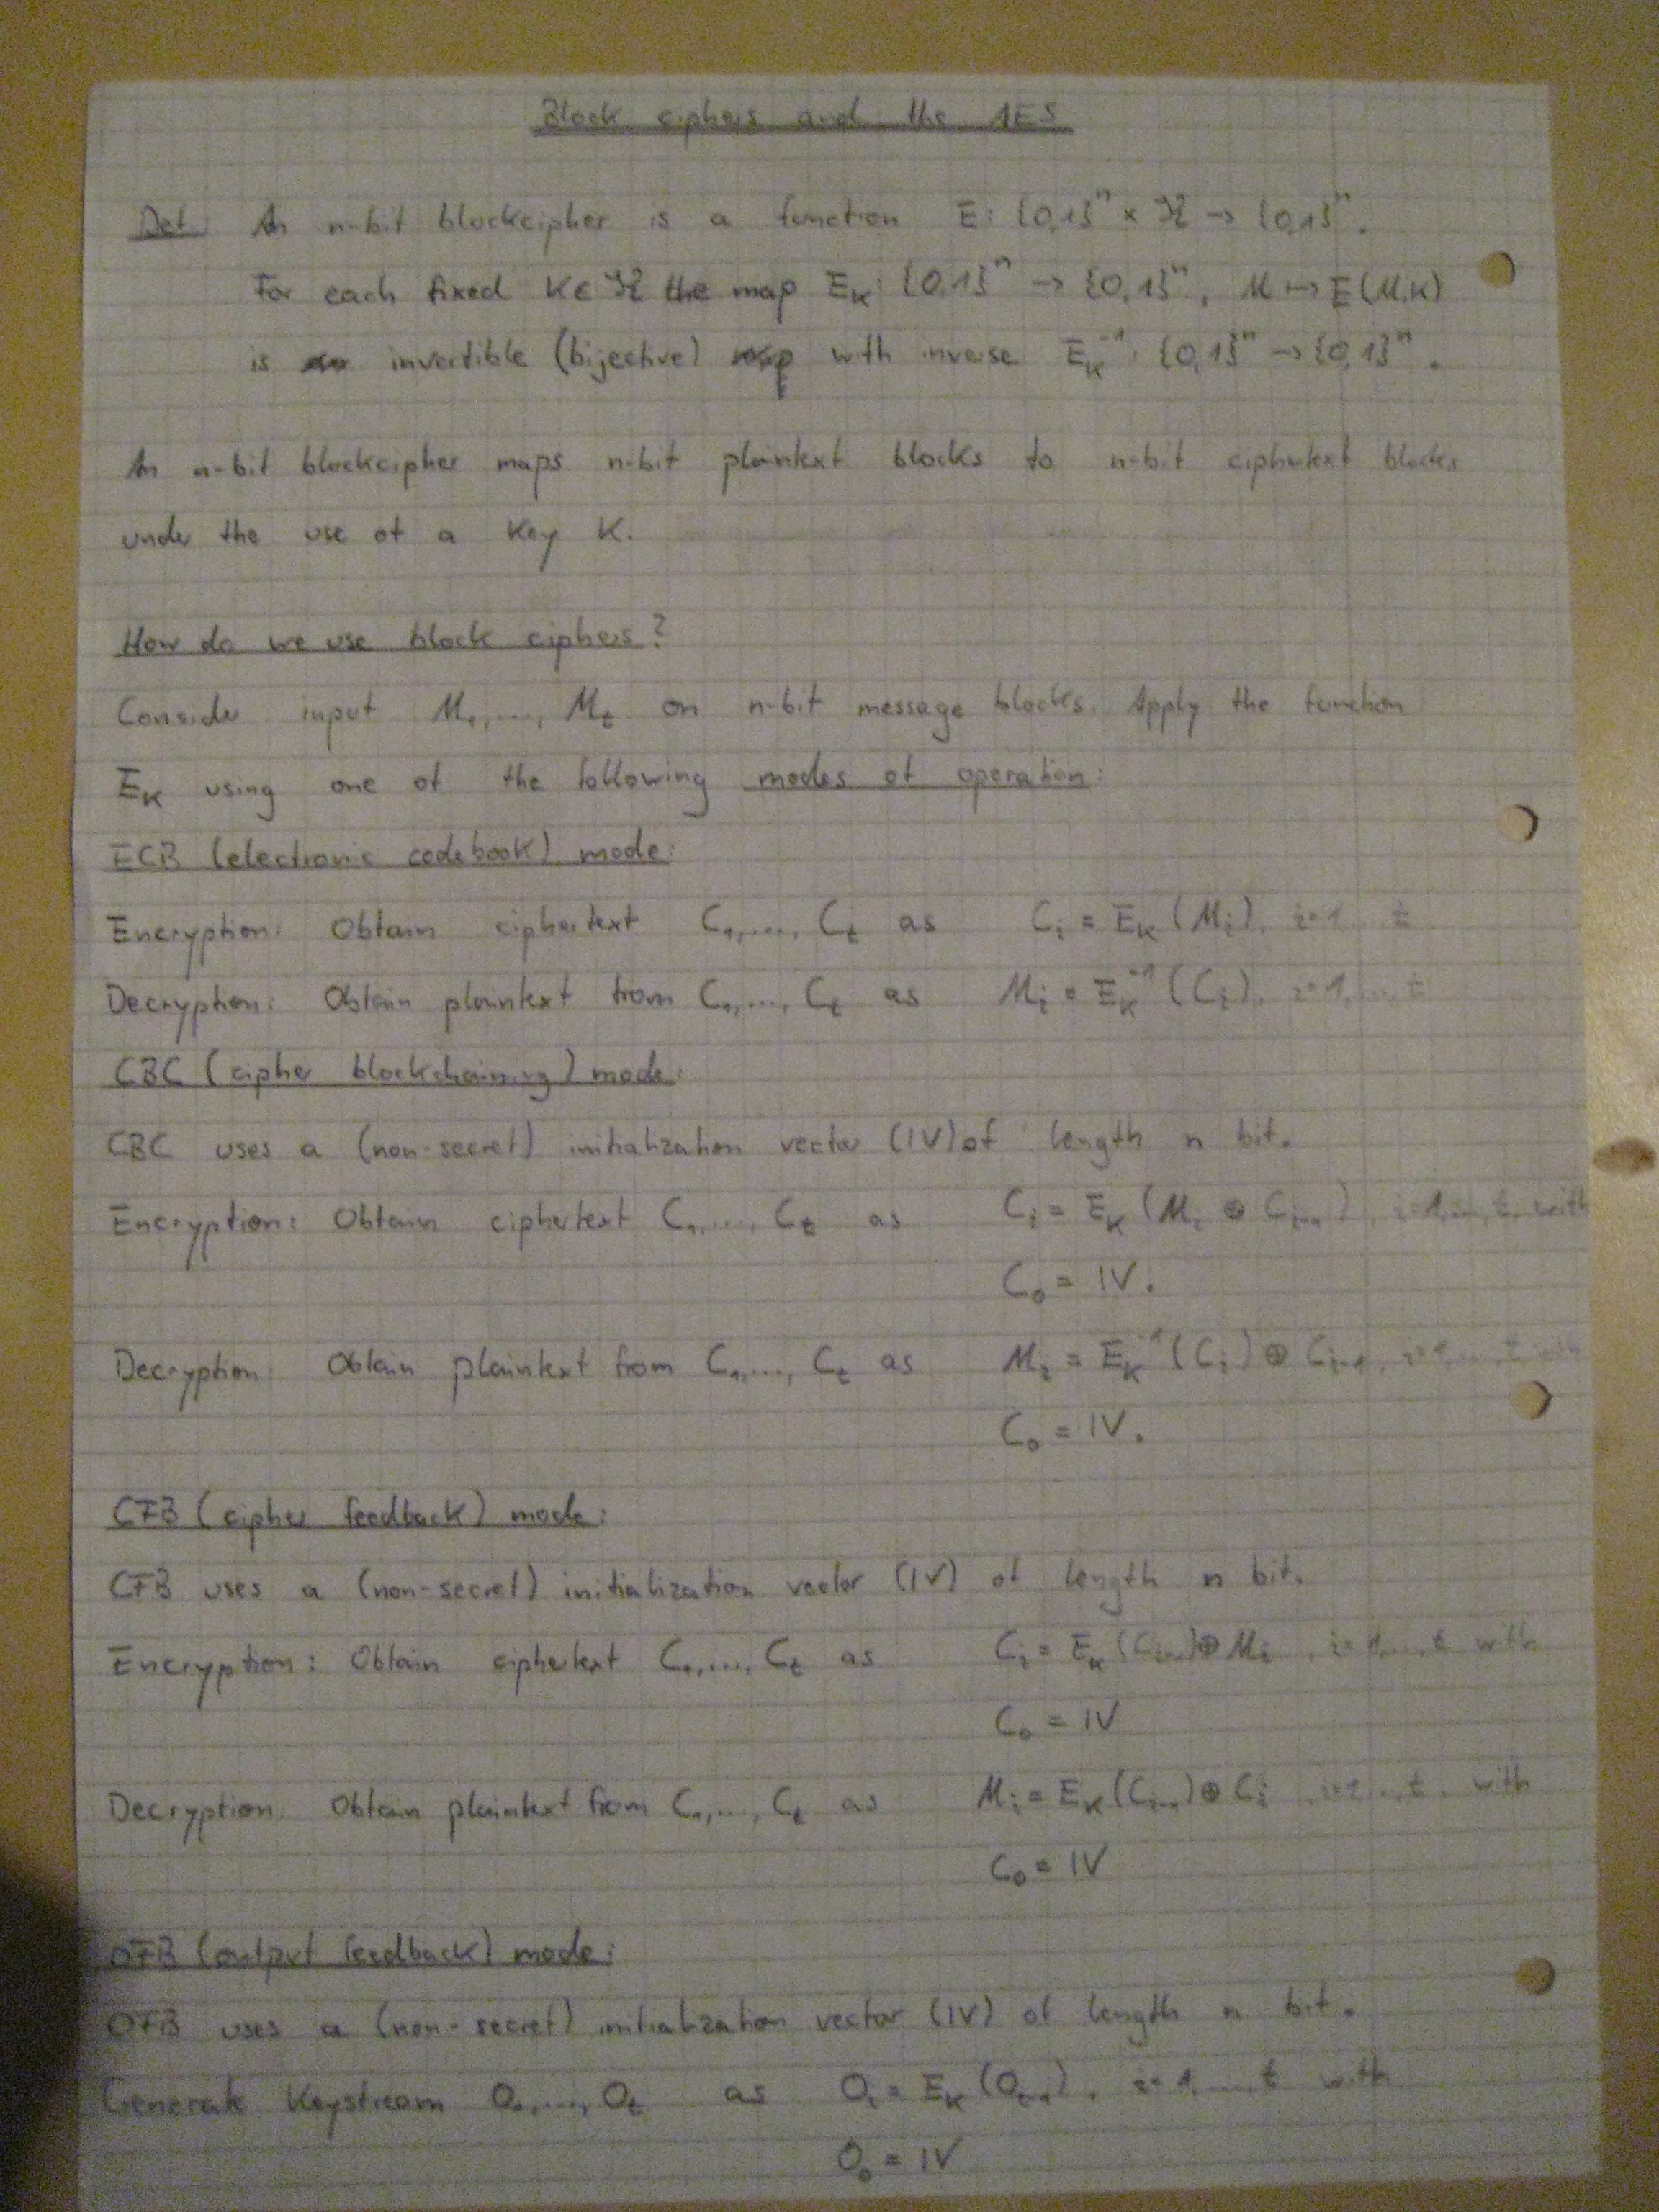 Block ciphers and the AES
Def An n-bit blockcipher is a function E: {0,1}ⁿ × 𝒦 → {0,1}ⁿ.
For each fixed K ∈ 𝒦 the map E_K: {0,1}ⁿ → {0,1}ⁿ, M ↦ E(M,K)
is invertible (bijective) with inverse E_K⁻¹: {0,1}ⁿ → {0,1}ⁿ.
An n-bit blockcipher maps n-bit plaintext blocks to n-bit ciphertext blocks
under the use of a key K.
How do we use block ciphers?
Consider input M₁,..., M_t on n-bit message blocks. Apply the function
E_K using one of the following modes of operation:
ECB (electronic codebook) mode:
Encryption: Obtain ciphertext C₁,..., C_t as C_i = E_K (M_i), i=1...t
Decryption: Obtain plaintext from C₁,..., C_t as M_i = E_K⁻¹ (C_i), i=1,...,t
CBC (cipher blockchaining) mode:
CBC uses a (non-secret) initialization vector (IV) of length n bit.
Encryption: Obtain ciphertext C₁,..., C_t as C_i = E_K (M_i ⊕ C_i-1), i=1,...,t, with
C₀ = IV.
Decryption: Obtain plaintext from C₁,..., C_t as M_i = E_K⁻¹ (C_i) ⊕ C_i-1, i=1,...,t with
C₀ = IV.
CFB (cipher feedback) mode:
CFB uses a (non-secret) initialization vector (IV) of length n bit.
Encryption: Obtain ciphertext C₁,..., C_t as C_i = E_K (C_i-1) ⊕ M_i, i=1,...,t with
C₀ = IV
Decryption: Obtain plaintext from C₁,..., C_t as M_i = E_K (C_i-1) ⊕ C_i i=1,...,t with
C₀ = IV
OFB (output feedback) mode:
OFB uses a (non-secret) initialization vector (IV) of length n bit.
Generate Keystream O₀,..., O_t as O_i = E_K (O_i-1), i=1,...,t with
O₀ = IV